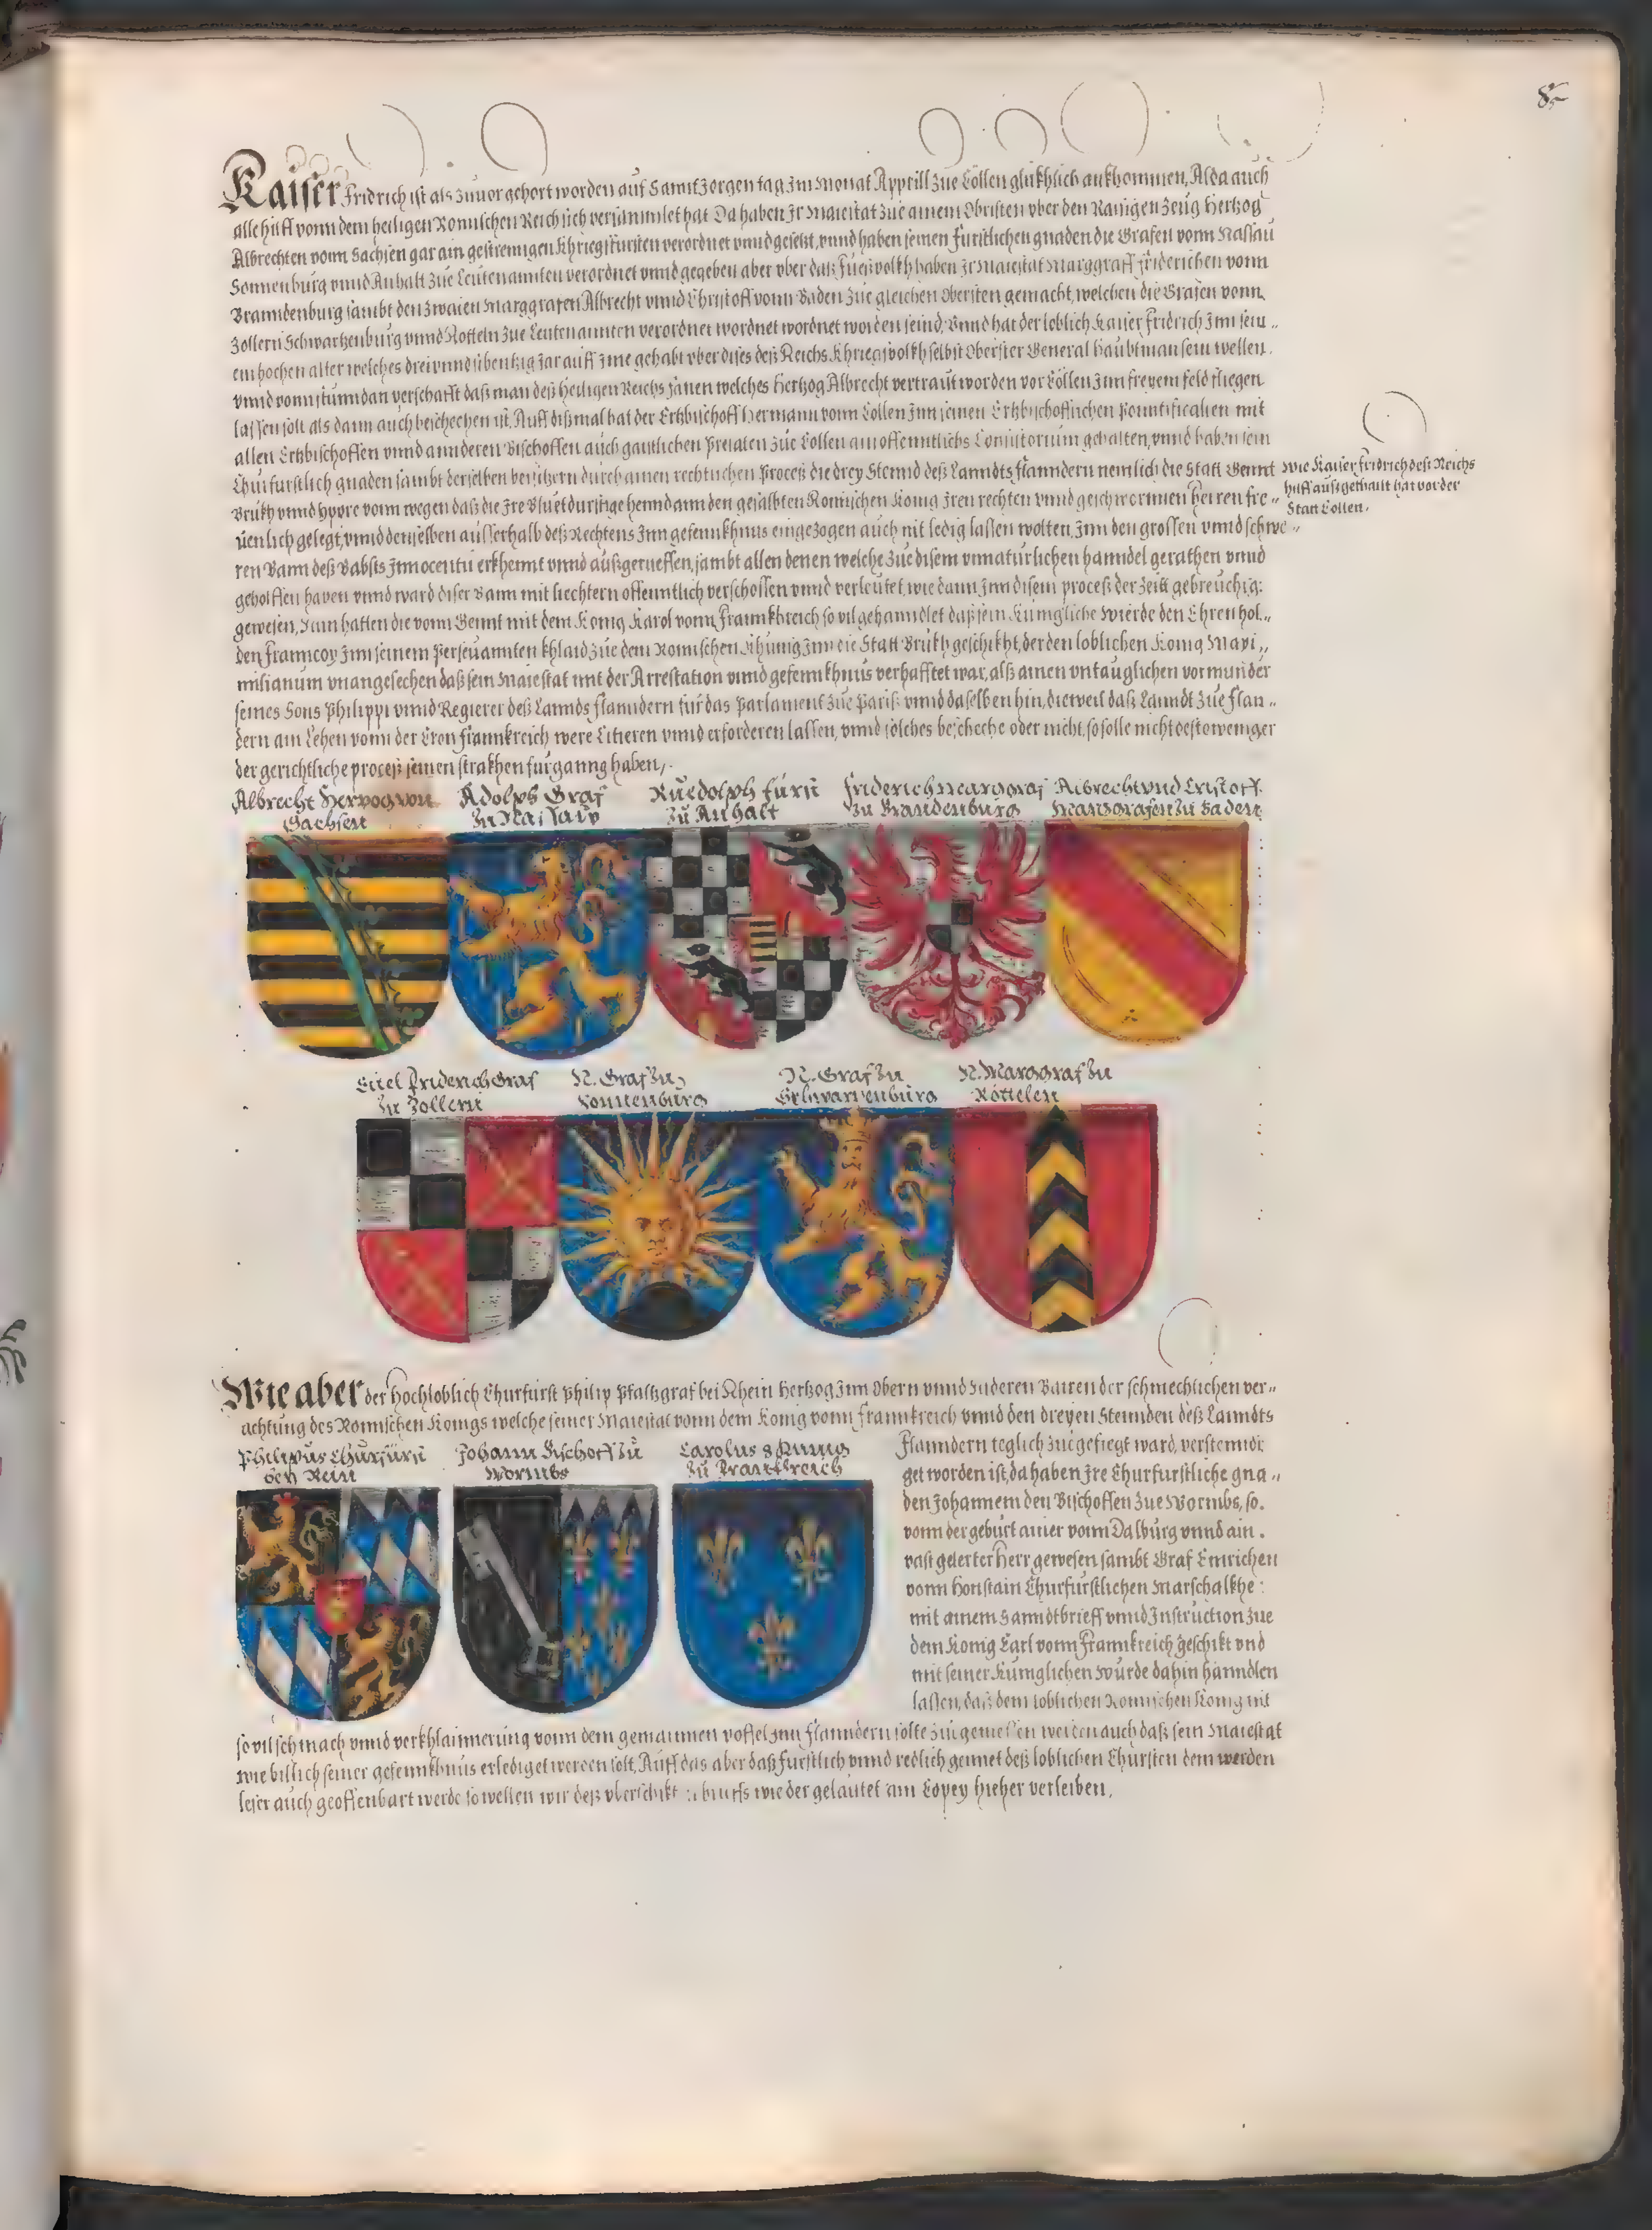 85
Kaiser Fridrich ist als zuuor gehort worden auf Sannt Jorgen tag Inn Monat Apprill zue Cöllen glükhlich ankhommen, Alda auch
alle hilff vonn dem heiligen Romischen Reich sich versammlet hat Da haben Ir Maiestat zue ainem Obristen vber den Raisigen Zeug Hertzog
Albrechten vonn Sachsen gar ain gestrenngen Khriegsfürsten verordnet vnnd gesetzt, vnnd haben seinen Furstlichen gnaden die Grafen vonn Nassau
Sonnenburg vnnd Anhalt zue Leütenannten verordnet vnnd gegeben aber vber daß Fueßvolkh haben Ir Maiestat Marggraff Friderichen vonn
Branndenburg sambt den zwaien Marggrafen Albrecht vnnd Christoff vonn Baden zue gleichen Obersten gemacht, welchen die Grafen vonn
Zollern Schwartzenburg vnnd Rotteln zue Leutenannten verordnet wordnet wordnet worden seind, Vnnd hat der loblich Kaiser Fridrich Inn sein„
em hochen alter welches drei vnnd sibentzig Jar auff Ime gehabt vber dises deß Reichs Khriegsvolkh selbst Oberster General Haubtman sein wellen,
vnnd vonn stunndan verschafft daß man deß heiligen Reichs fanen welches Hertzog Albrecht vertraut worden vor Cöllen Inn freyem feld fliegen
lassen solt als dann auch beschechen ist, Auff dißmal hat der Ertzbischoff Hermann vonn Cöllen Inn seinen Ertzbischofflichen Pountificalien mit
allen Ertzbischoffen vnnd annderen Bischoffen auch gaistlichen Prelaten zue Cöllen ain offenntlichs Consistorium gehalten, vnnd haben sein
Churfurstlich gnaden sambt derselben beysitzern durch ainen rechtlichen Proceß die drey Stennd deß Lanndts Flanndern nemlich die Statt Gennt
Brükh vnnd Hypre vonn wegen daß die Ire Bluetdurstige henndt ann den gesalbten Romischen König Iren rechten vnnd geschwornnen Herren fre„
uenlich gelegt, vnnd denselben ausserhalb deß Rechtens Inn gefennkhnus eingezogen auch nit ledig lassen wolten, Inn den grossen vnnd schwe„
ren Bann deß Babsts Innocentii erkhennt vnnd außgerueffen, sambt allen denen welche zue disem vnnaturlichen hanndel gerathen vnnd
geholffen haben vnnd ward diser Bann mit liechtern offenntlich verschossen vnnd verleutet, wie dann Inn disem proceß der Zeitt gebreuchig:
gewesen, Nun hatten die vonn Gennt mit dem König Karol vonn Frannkhreich so vil gehanndlet daß sein Kunigliche Wierde den Ehrenhol„
den Franncoy Inn seinem Perseuannten khlaid zue dem Romischen Khunig Inn die Statt Brükh geschikht, der den loblichen König Maxi„
milianum vnangesechen daß sein Maiestat mit der Arrestation vnnd gefennkhnus verhafftet war, alß ainen vntauglichen vormunder
seines Sons Philippi vnnd Regierer deß Lannds Flanndern für das Parlament zue Pariß vnnd daselben hin, dieweil daß Lanndt zue Flan„
dern ain Lehen vonn der Cron Frannkreich were Citieren vnnd erforderen lassen, vnnd solches beschehe oder nicht, so solle nicht destoweniger
der gerichtliche proceß seinen strakhen furganng haben,
Wie Kaiser Fridrich deß Reichs
hilff außgethailt hat vor der
Statt Cöllen.
Albrecht Hertzog von
Sachsen
Adolph Graf
zu Nassaw
Ruedolph Fürst
zu Anhalt
Friderich Marggraf
zu Brandenburg
Albrecht vnd Cristoff
Marggrafen zu Baden
Eitel Friderich Graf
zu Zollern
N. Graf zu
Sonnenburg
N. Graf zu
Schwartzenburg
N. Marggraf zu
Röttelen
Wie aber der Hochloblich Churfurst Philip Pfaltzgraf bei Rhein Hertzog Inn Obern vnnd Nideren Bairen der schmechlichen ver„
achtung des Romischen Königs welche seiner Maiestat vonn dem König vonn Frannkreich vnnd den dreyen Stennden deß Lanndts
Philippus Churfürst
bey Rein
Johann Bischoff zu
Wormbs
Carolus 8 Kunig
zu Franckreich
Flanndern teglich zuegefiegt ward, verstenndi
get worden ist, da haben Ire Churfurstliche gna„
den Johannem den Bischoffen zue Wormbs, so
vonn der geburt ainer vonn Dalburg vnnd ain
vast gelerter Herr gewesen sambt Graf Emrichen
vonn Honstain Churfürstlichen Marschalkhe:
mit ainem Sanndtbrieff vnnd Instruction zue
dem König Carl vonn Frannkreich geschikt vnd
mit seiner Kunglichen Wurde dahin hanndlen
lassen, daß dem loblichen Romischen König nit
so vil schmach vnnd verkhlainnerung vonn dem gemainnen poffel Inn Flanndern solte zuegemessen werden auch daß sein Maiestat
wie billich seiner gefennkhnus erlediget werden solt, Auff das aber daß furstlich vnnd redlich gemet deß loblichen Chursten dem werden
leser auch geoffenbart werde so wellen wir deß vberschikt brieffs wie der gelautet ain Copey hieher verleiben.